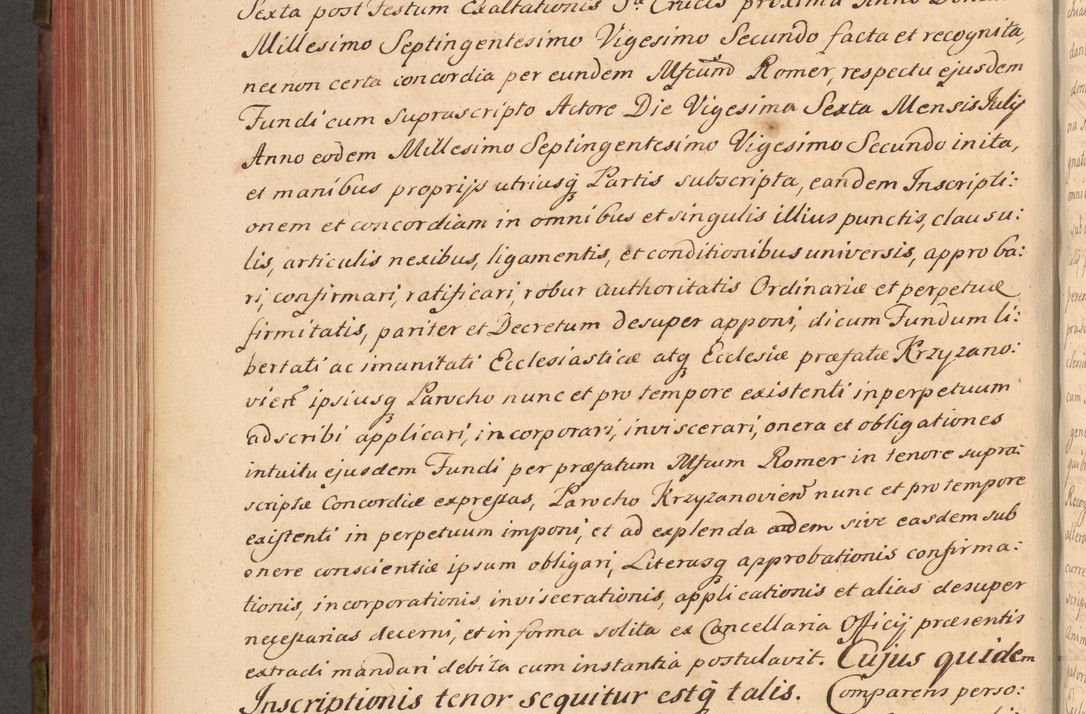 Sexta post Festum Exaltationis S. Crucis proxima Anno Domini
Millesimo Septingentesimo Vigesimo Secundo facta et recognita,
nec non certa concordia per eundem Mscum̃d Romer, respectu ejusdem
Fundi cum suprascripto Actore Die Vigesima Sexta Mensis Julij
Anno eodem Millesimo Septingentesimo Vigesimo Secundo inita,
et manibus proprijs utriusq̃ Partis subscripta, eandem Inscripti:
onem et concordiam in omnibus et singulis illius punctis, clausu:
lis, articulis nexibus, ligamentis, et conditionibus universis, approba:
ri, confirmari, ratificari, robur authoritatis Ordinariæ et perpetuæ
firmitatis, pariter et Decretum desuper apponi, dicum Fundum li:
bertati ac imunitati Ecclesiasticæ atq̃ Ecclesiæ præfatæ Krzyzano:
vien̄ ipsiusq̃ Parocho nunc et pro tempore existenti in perpetuum
adscribi applicari, incorporari, inviscerari, onera et obligationes
intuitu ejusdem Fundi per præfatum Mfcum Romer in tenore supra:
scriptæ Concordiæ expressas, Parocho Krzyzanovien̄ nunc et pro tempore
existenti in perpetuum imponi, et ad explenda eadem sive easdem sub
onere conscientiæ ipsum obligari, Literasq̃ approbationis confirma:
tionis, incorporationis inviscerationis, applicationis et alias desuper
necessarias decerni, et in forma solita ex Cancellaria Officij præsentis
extradi mandari debita cum instantia postulavit. Cujus quidem
Inscriptionis tenor sequitur estq̃ talis. Comparens perso: